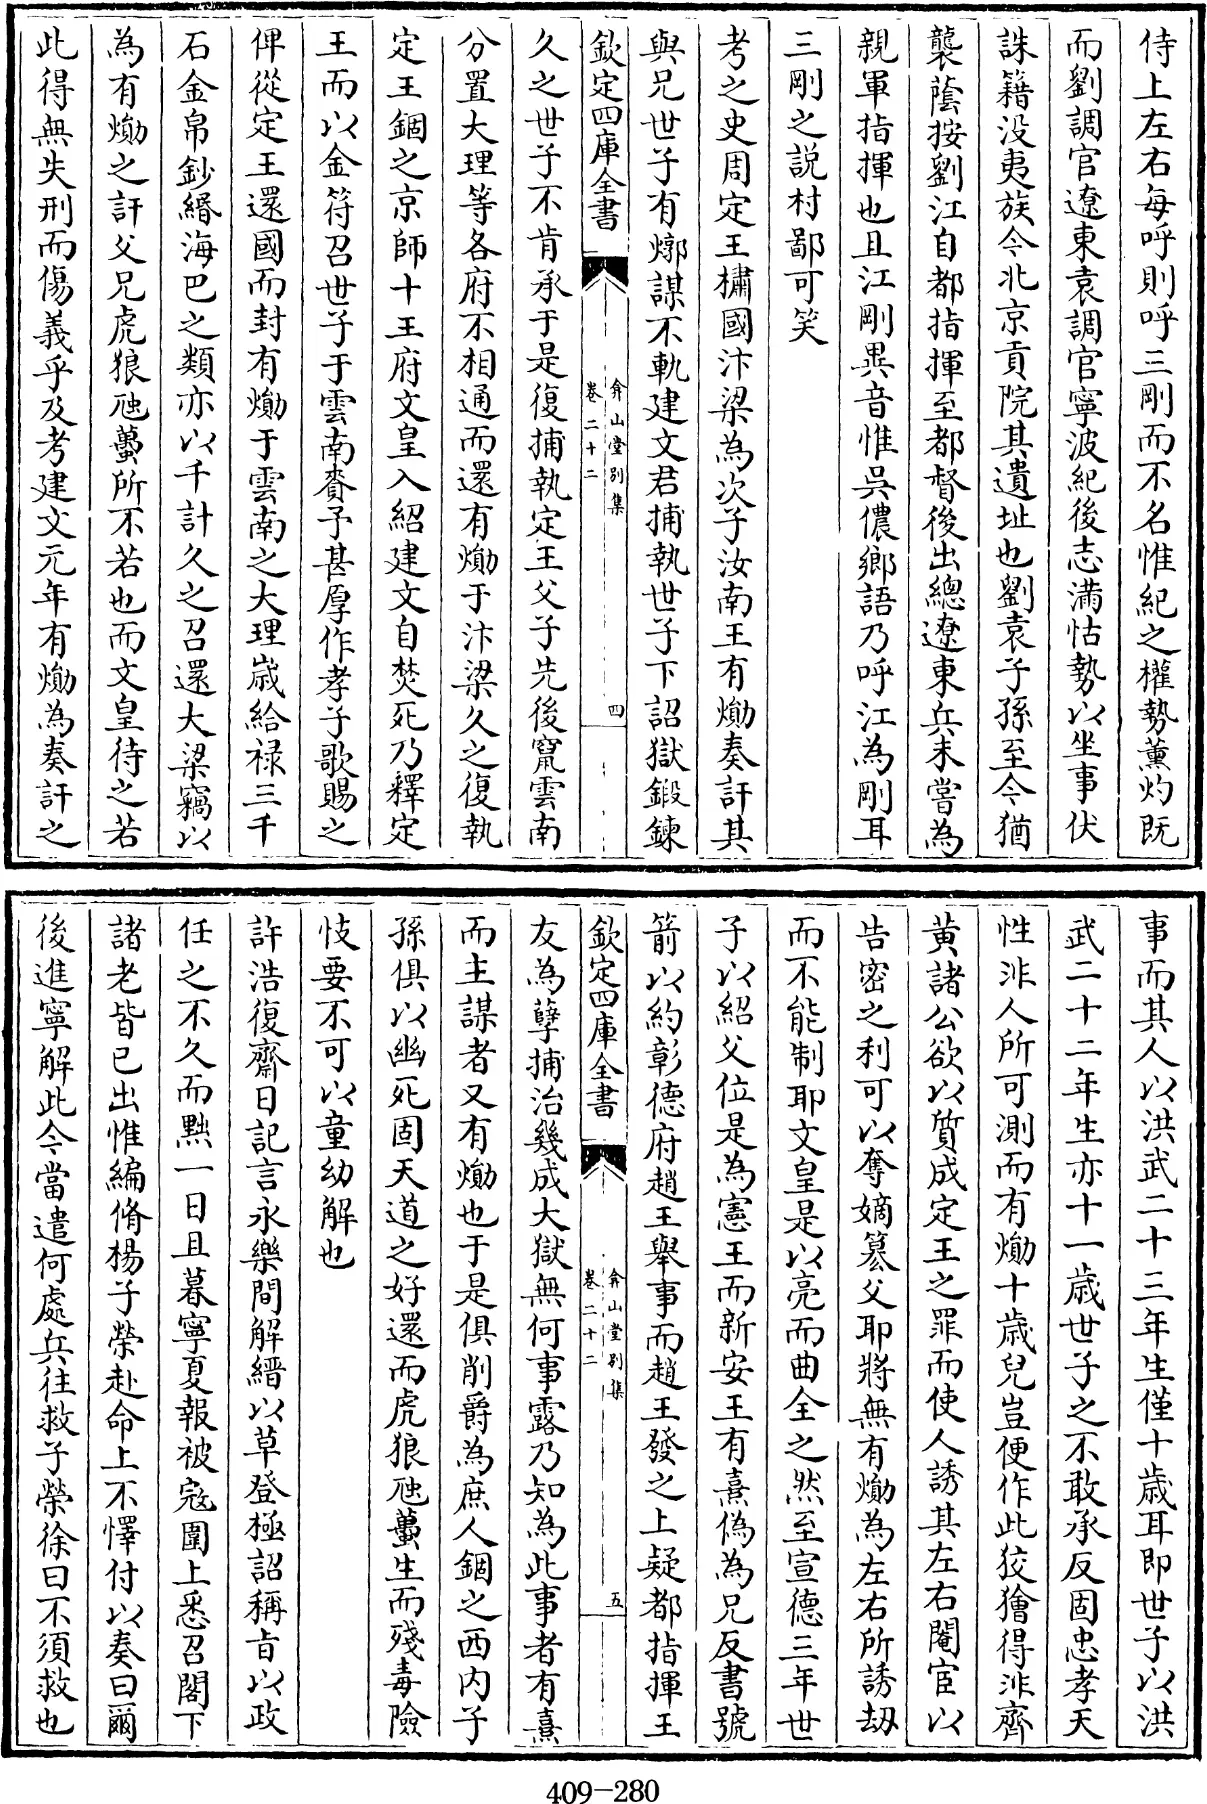 侍上左右每呼則呼三剛而不名惟紀之權勢薰灼既
而劉調官遼東袁調官寧波紀後志滿怙勢以坐事伏
誅籍没夷族今北京貢院其遺址也劉袁子孫至今猶
襲蔭按劉江自都指揮至都督後出總遼東兵未嘗為
親軍指揮也且江剛異音惟吳儂鄉語乃呼江為剛耳
三剛之説村鄙可笑
考之史周定王橚國汴梁為次子汝南王有爋奏訐其
與兄世子有燉謀不軌建文君捕執世子下詔獄鍛鍊
欽定四庫全書
弇山堂别集
卷二十二
四
久之世子不肯承于是復捕執定王父子先後竄雲南
分置大理等各府不相通而還有爋于汴梁久之復執
定王錮之京師十王府文皇入紹建文自焚死乃釋定
王而以金符召世子于雲南賚予甚厚作孝子歌賜之
俾從定王還國而封有爋于雲南之大理歲給禄三千
石金帛鈔緡海巴之類亦以千計久之召還大梁竊以
為有爋之訐父兄虎狼虺蠆所不若也而文皇待之若
此得無失刑而傷義乎及考建文元年有爋為奏訐之
事而其人以洪武二十三年生僅十歲耳即世子以洪
武二十二年生亦十一歲世子之不敢承反固忠孝天
性非人所可測而有爋十歲兒豈便作此狡獪得非齊
黄諸公欲以質成定王之罪而使人誘其左右閹宦以
告密之利可以奪嫡簒父耶將無有爋為左右所誘刼
而不能制耶文皇是以亮而曲全之然至宣德三年世
子以紹父位是為憲王而新安王有熹偽為兄反書號
箭以約彰德府趙王舉事而趙王發之上疑都指揮王
欽定四庫全書
弇山堂别集
卷二十二
五
友為孽捕治幾成大獄無何事露乃知為此事者有熹
而主謀者又有爋也于是俱削爵為庶人錮之西内子
孫俱以幽死固天道之好還而虎狼虺蠆生而殘毒險
忮要不可以童幼解也
許浩復齋日記言永樂間解縉以草登極詔稱旨以政
任之不久而黜一日且暮寧夏報被寇圍上悉召閣下
諸老皆已出惟編脩楊子榮赴命上不懌付以奏曰爾
後進寧解此今當遣何處兵往救子榮徐曰不須救也
409-280